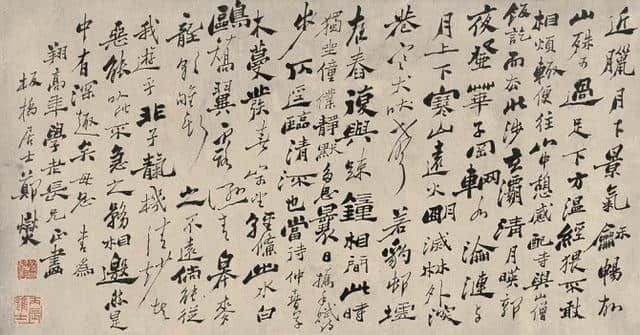 近臘月下景氣龢暢故
山殊可過足下方溫經猥不敢
相煩輒便往山中憩感配寺與山僧
飯訖而去北涉玄灞清月暎郭
夜登華子岡輞水淪漣與
月上下寒山遠火明滅林外深
巷寒犬吠聲若豹邨墟
夜舂復與疎鐘相間此時
獨坐僮僕靜默多思曩日攜手賦詩
步仄逕臨清流也當待仲春卉
木蔓發春山可望輕鯈出水白
鷗矯翼露濕青皋麥
隴朝雊斯之不遠倘能從
我遊乎非子天機清妙者
惡能以此不急之務相邀然是
中有深趣矣毋忽 書為
翔高年學老長兄正畫
板橋居士鄭燮